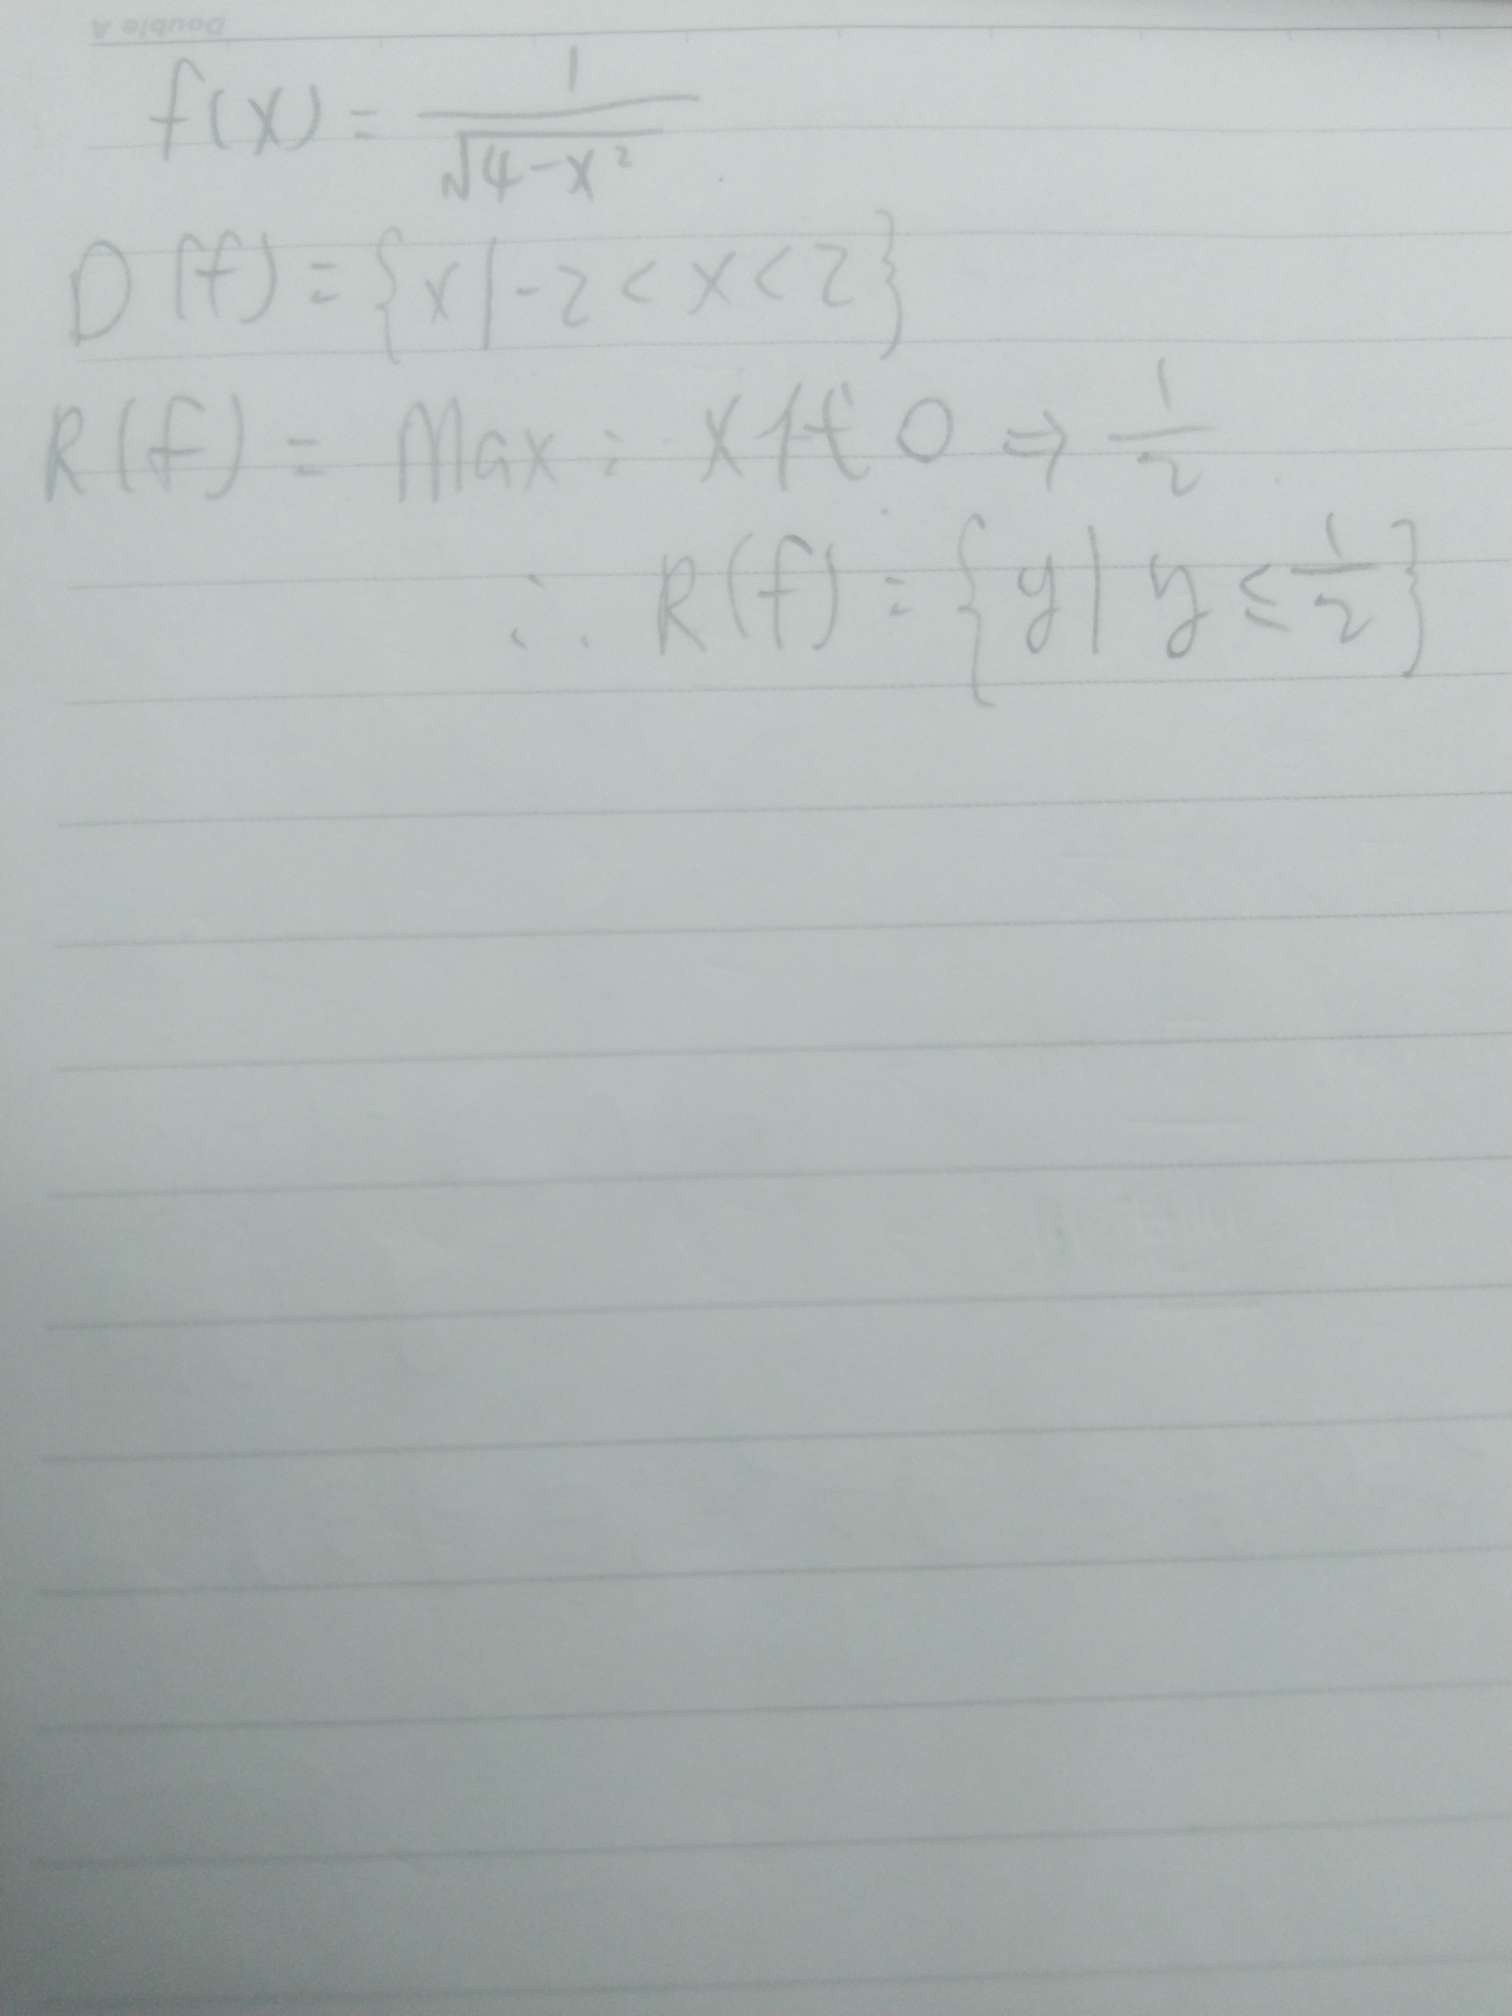 Double A
f(x) = 1/√(4-x²)
D(f) = {x | -2 < x < 2}
R(f) = Max : x 代 0 ⇒ 1/2
∴ R(f) = {y | y ≤ 1/2}